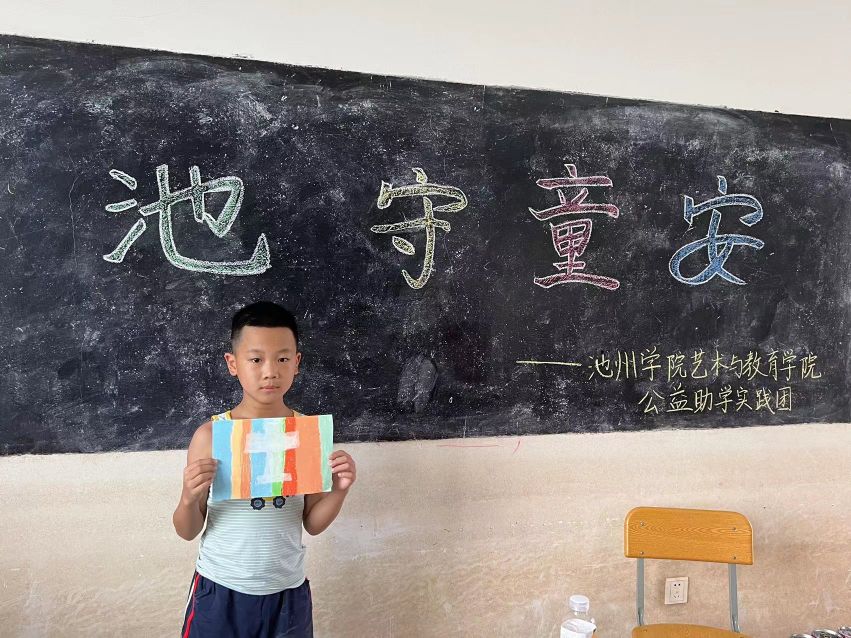 池守童安
——池州学院艺术与教育学院
公益助学实践团